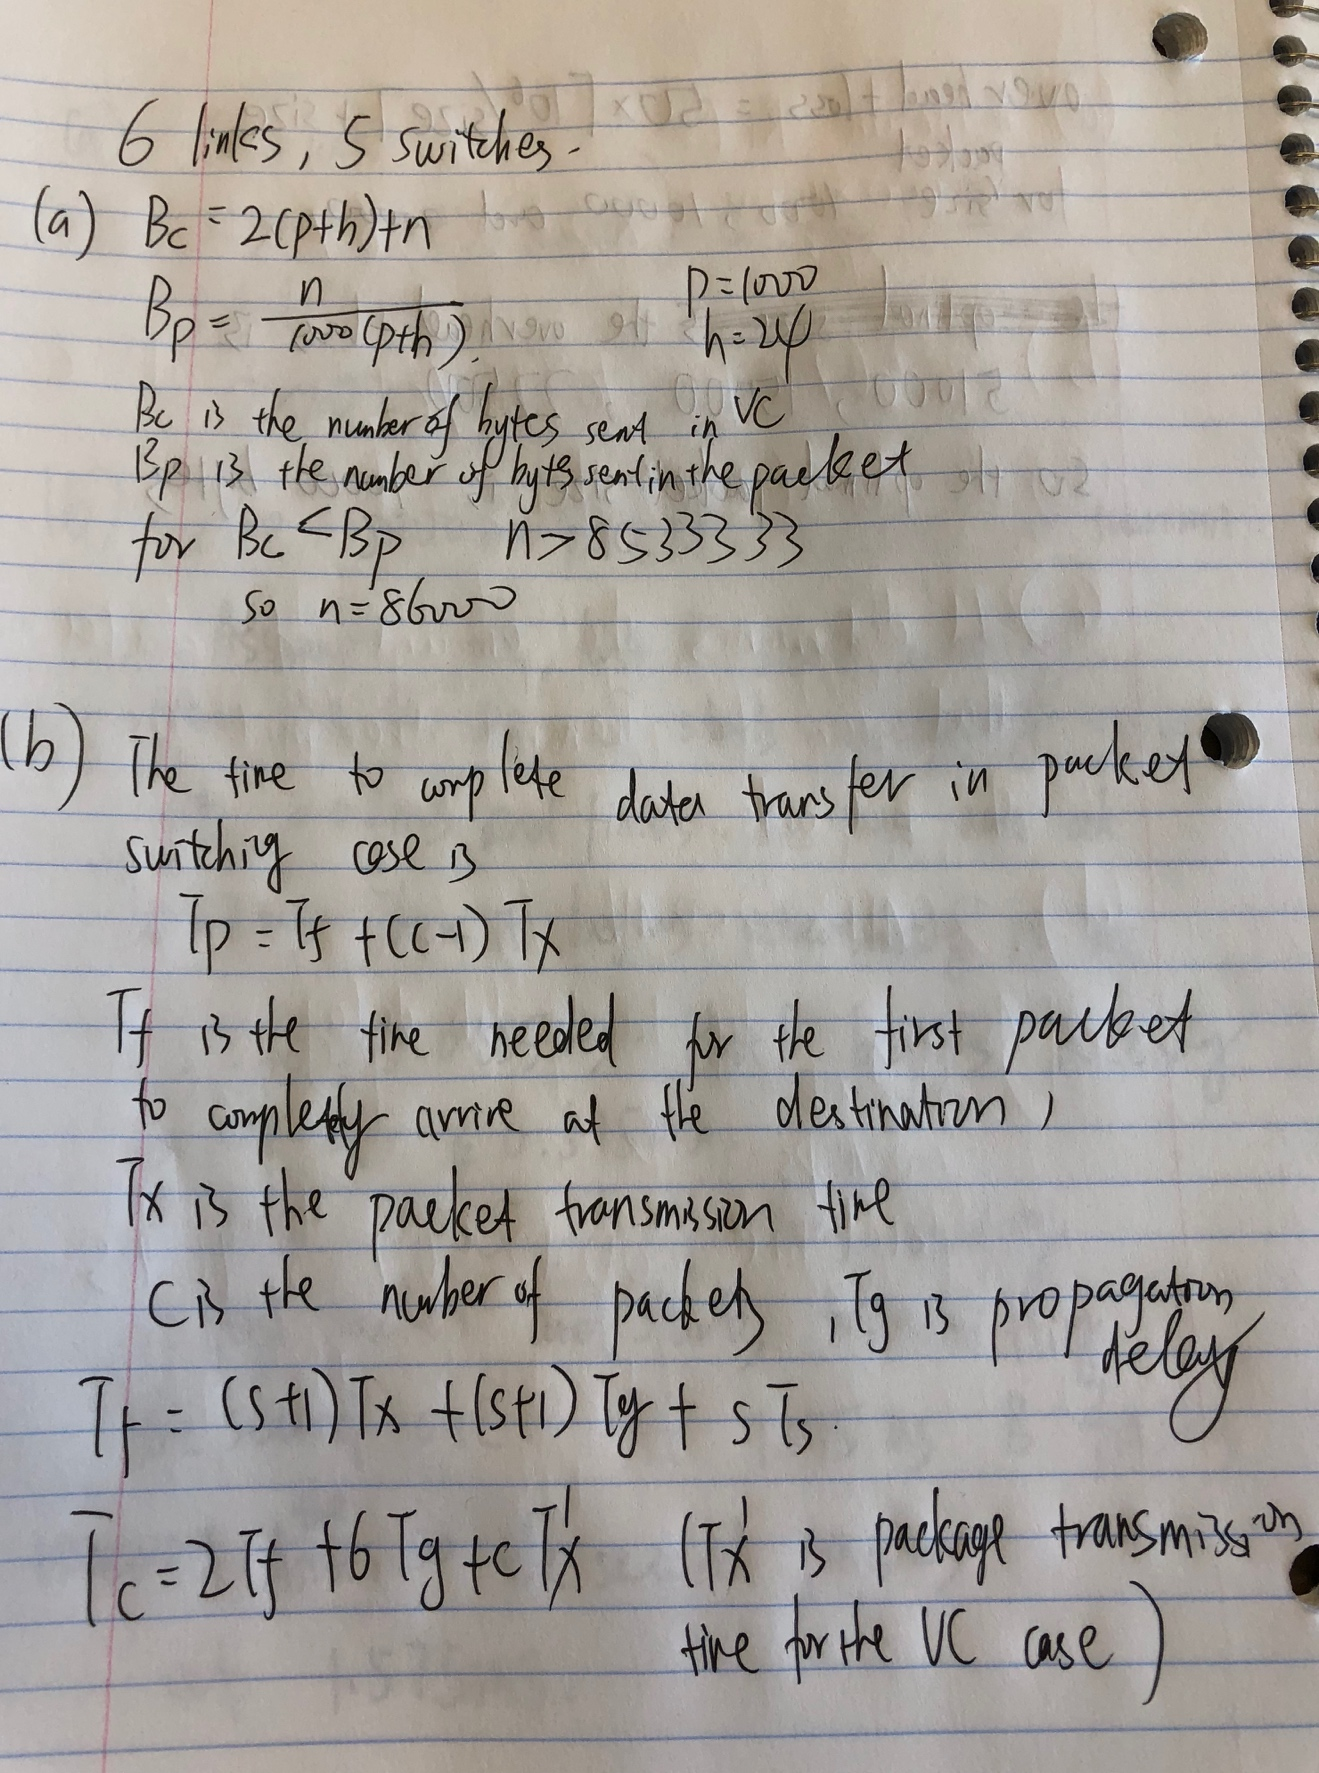 6 links, 5 switches.
(a) Bc = 2(p+h)+n
Bp = n / 1000(p+h).
p=1000
h=24
Bc is the number of bytes sent in VC
Bp is the number of bytes sent in the packet
for Bc < Bp n > 8533333
so n = 86000
(b) The time to complete data transfer in packet
switching case is
Tp = Tf + (c-1) Tx
Tf is the time needed for the first packet
to completely arrive at the destination,
Tx is the packet transmission time
C is the number of packets, Tg is propagation
delay
Tf = (s+1)Tx + (s+1) Tg + s Ts.
Tc = 2Tf + 6Tg + cTx' (Tx' is package transmission
time for the VC case)